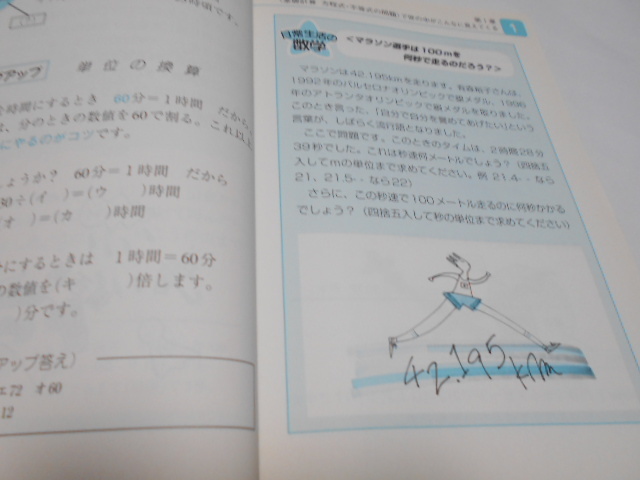 時間です。
アップ 単位の換算
分時間にするとき 60分＝1時間 だから
は、分のときの数値を60で割る。これ以上
にやるのがコツです。
しょうか？ 60分＝1時間 だから
30÷(イ )＝(ウ )時間
オ )＝(カ )時間
にするときは 1時間＝60分
の数値を(キ )倍します。
)分です。
アップ答え)
エ72 オ60
12
第1章
1
日常生活の
数学
＜マラソン選手は100mを
何秒で走るのだろう？＞
マラソンは42.195kmを走ります。有森裕子さんは、
1992年のバルセロナオリンピックで銀メダル、1996
年のアトランタオリンピックで銅メダルを取りました。
このとき言った、「自分で自分を褒めてあげたい」という
言葉が、しばらく流行語となりました。
ここで問題です。このときのタイムは、2時間28分
39秒でした。これは秒速何メートルでしょう？（四捨五
入してmの単位まで求めてください。例 21.4…なら
21、21.5…なら22）
さらに、この秒速で100メートル走るのに何秒かかる
でしょう？（四捨五入して秒の単位まで求めてください）
42.195km